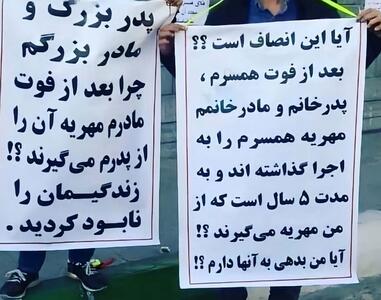 آیا این انصاف است ؟؟
بعد از فوت همسرم ،
پدرخانم و مادرخانمم
مهریه همسرم را به
اجرا گذاشته اند و به
مدت ۵ سال است که از
من مهریه می‌گیرند ؟!
آیا من بدهی به آنها دارم ؟!
پدر بزرگ و
مادر بزرگم
چرا بعد از فوت
مادرم مهریه آن را
از پدرم می‌گیرند ؟!
زندگیمان را
نابود کردید .